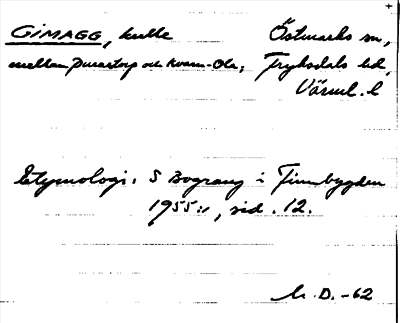 GIMAGG, kulle Östmarks sn,
mellan Purastorp och Kvarn-Ola, Fryksdals hd,
Värml. l
Etymologi: S Bograng i Finnbygden
1955:1, sid. 12.
M. D. -62